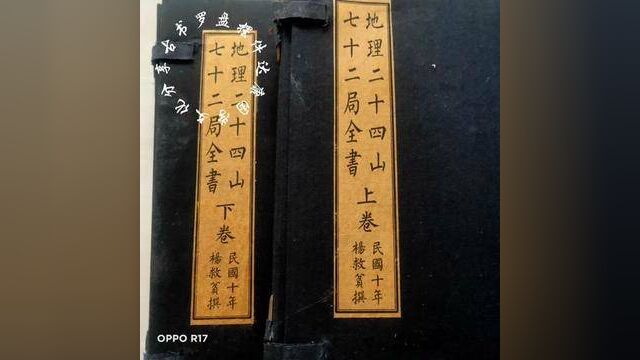 地理二十四山
七十二局全書
上卷
民國十年
楊救貧撰
地理二十四山
七十二局全書
下卷
民國十年
楊救貧撰
书罗盘
OPPO R17